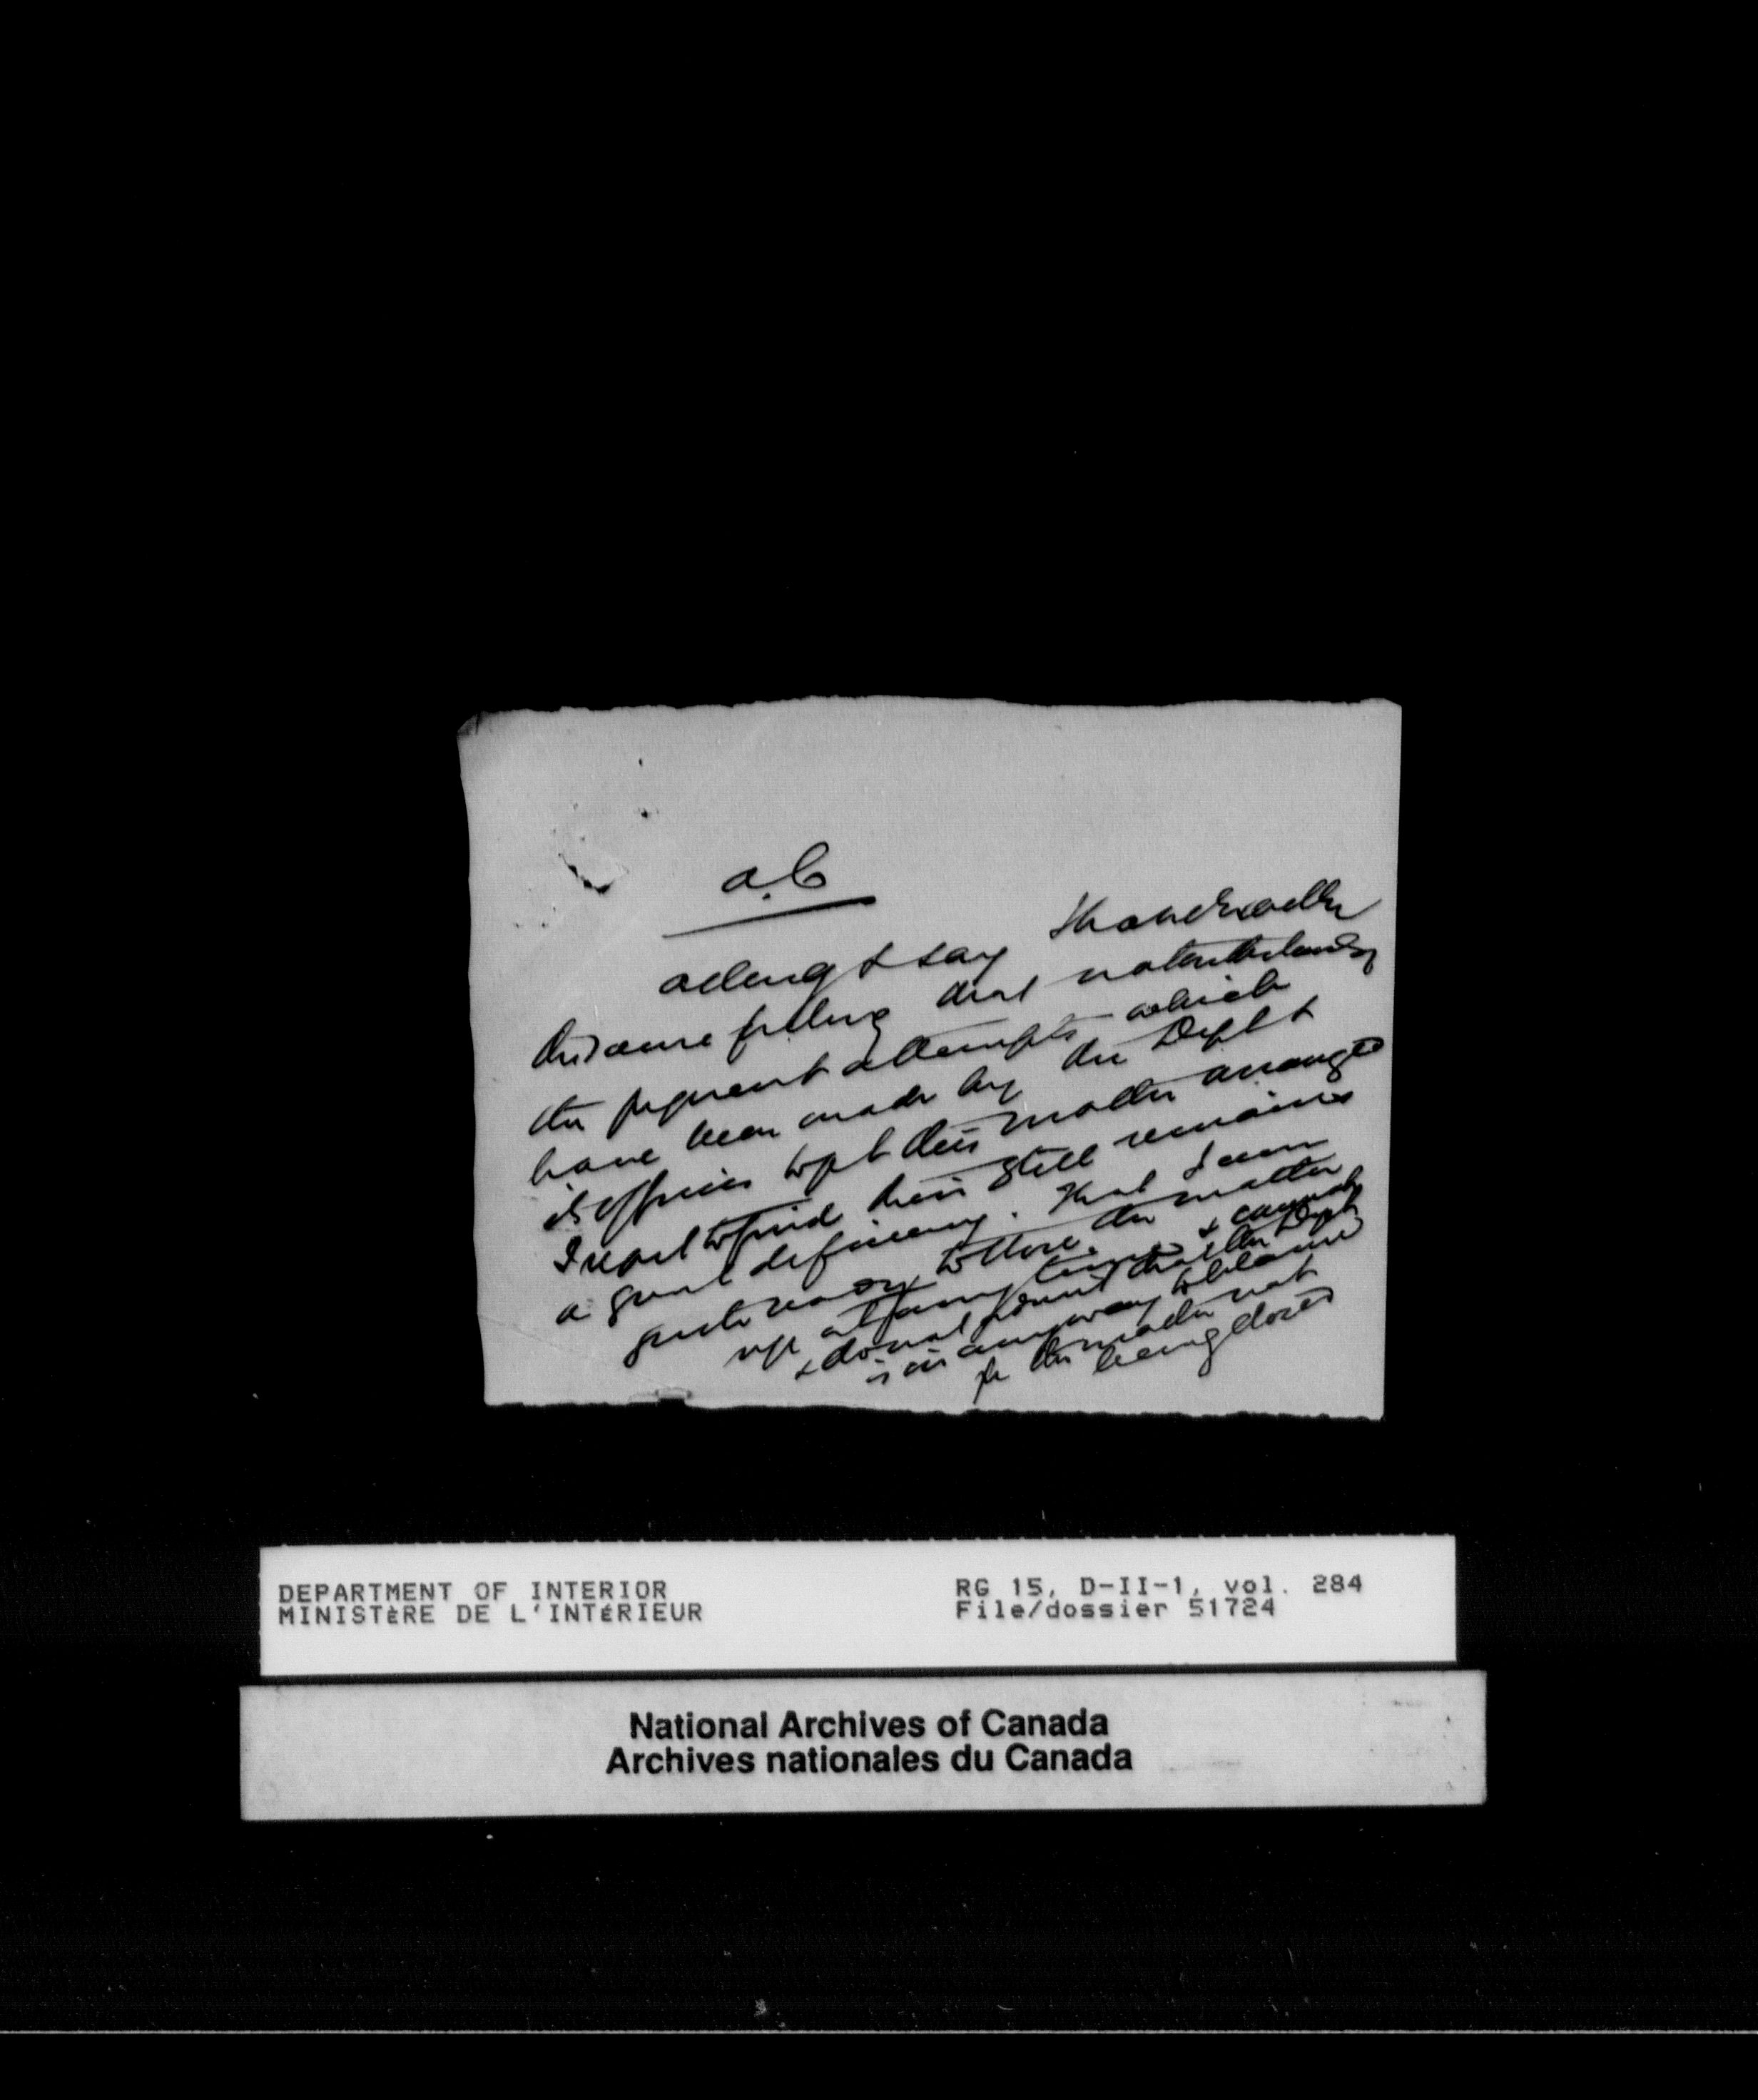 a.b
acknowg & say that
the same feeling that notwithstanding
the frequent attempts which
have been made by the Dept
& its officers to get this matter arranged
I regret to find there still remains
a great deficiency. That I am
quite ready to take the matter
up at any time & cannot
& do not admit that the Dept
is in any way to blame
for the matter not
being closed
DEPARTMENT OF INTERIOR
MINISTÈRE DE L'INTÉRIEUR
RG 15, D-II-1, vol. 284
File/dossier 51724
National Archives of Canada
Archives nationales du Canada